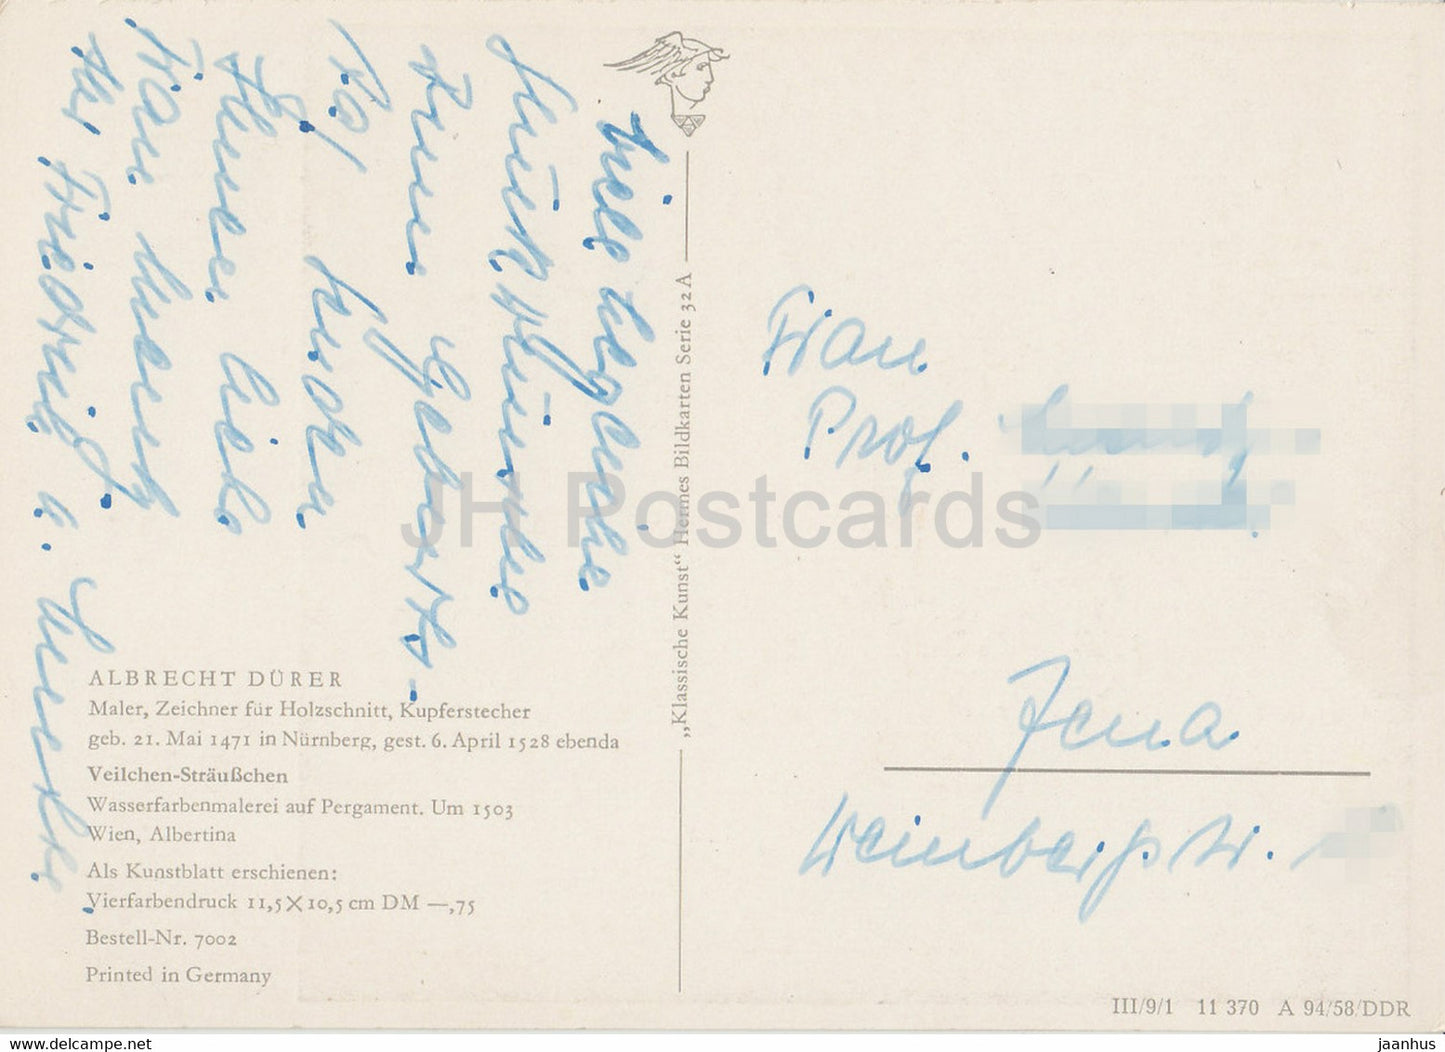 Viele herzliche
Glückwünsche
zum Geburts-
tag senden
Ihnen liebe
Frau
Ihr Friedrich u.
Frau
Prof.
Jena
Weinbergstr.
„Klassische Kunst“ Hermes Bildkarten Serie 32 A
ALBRECHT DÜRER
Maler, Zeichner für Holzschnitt, Kupferstecher
geb. 21. Mai 1471 in Nürnberg, gest. 6. April 1528 ebenda
Veilchen-Sträußchen
Wasserfarbenmalerei auf Pergament. Um 1503
Wien, Albertina
Als Kunstblatt erschienen:
Vierfarbendruck 11,5 × 10,5 cm DM —,75
Bestell-Nr. 7002
Printed in Germany
III/9/1 11 370 A 94/58/DDR
JH Postcards
www.delcampe.net
jaanhus